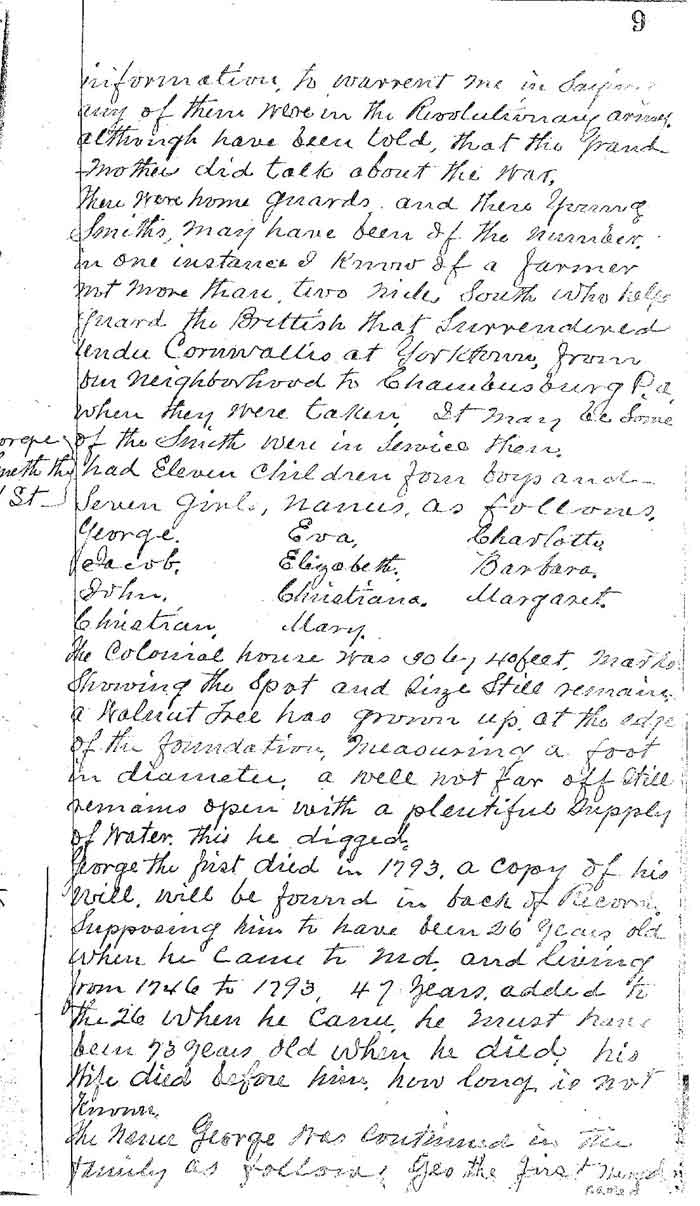 9
information, to warrent me in Saying
any of them were in the Revolutionary army.
although have been told, that the Grand
-mother did talk about the war.
There were home guards. and these Young
Smiths, may have been of the number.
in one instance I know of a farmer
not more than, two miles South who helped
guard the Brittish that Surrendered
under Cornwallis at Yorktown, from
our neighborhood to Chambersburg Pa,
when they were taken, It may be Some
of the Smith were in Service then.
George
Smeth the
1 St
had Eleven Children four boys and
Seven girls, names, as follows.
George. Eva, Charlotte,
Jacob. Elizebeth. Barbara.
John. Christiana. Margaret.
Christian, Mary.
The Colonial house was 30 by 40 feet, marks
Showing the Spot and Size Still remain,
a Walnut Tree has grown up, at the edge
of the foundation, Measuring a foot
in diameter, a well not far off Still
remains open with a plentiful Supply
of Water. this he digged,
George the first died in 1793. a copy of his
Will, will be found in back of Record.
Supposing him to have been 26 Years old
when he Came to Md. and living
from 1746 to 1793, 47 Years, added to
the 26 when he Came, he must have
been 73 Years old when he died, his
Wife died before him, how long is not
Known.
The Name George was Continued in the
family as follows, Geo the first named
named